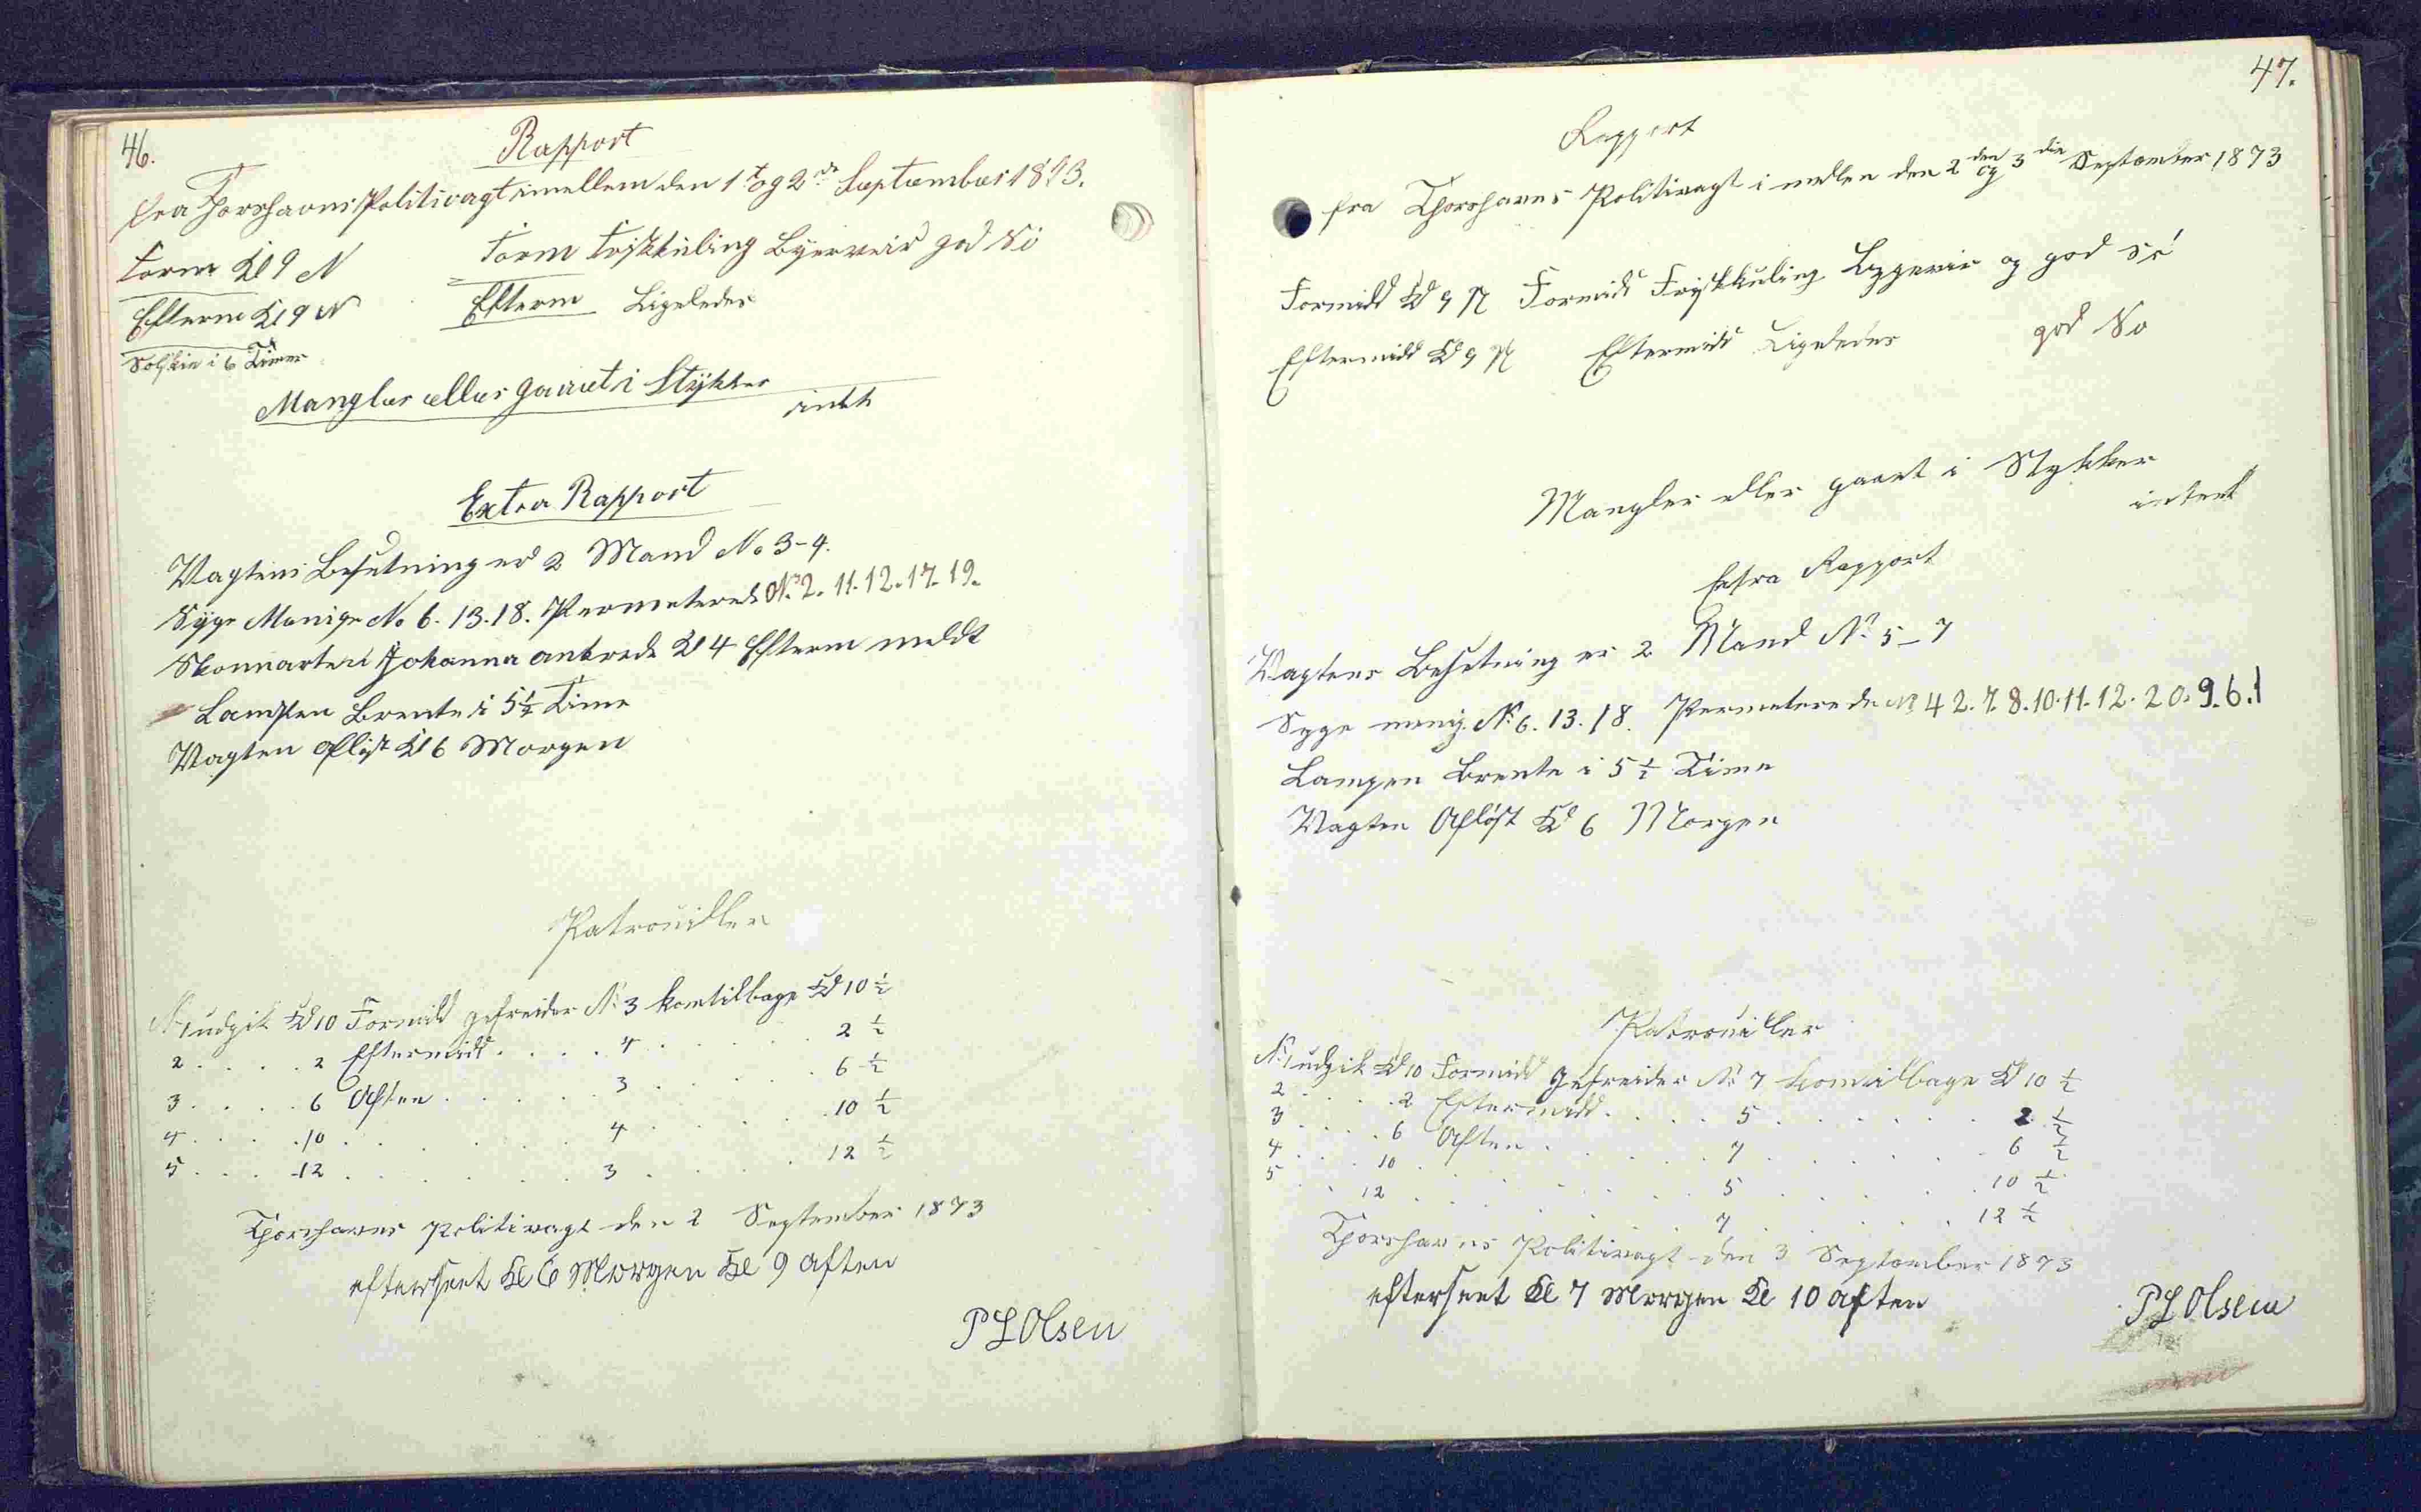 46.
Rapport
fra Thorshavns Politivagt imellem den 1t og 2de September 1873.
Form Kl 9 N Form Friskkuling Byerveir god Sö
Efterm Kl 9 N Efterm Ligeledes
Solskin i 6 Timer
Mangler eller gaaet i Stykker
intet
Extra Rapport
Vagtens Besetning er 2 Mand No 3-4.
Syge Menige No 6. 13. 18. Permeterede No 2. 11. 12. 17. 19.
Skonnarten Johanna ankrede Kl 4 Efterm meldt
Lampen Brente i 5½ Time
Vagten Aflöst Kl 6 Morgen
Patrouiller
No 1 udgik Kl 10 Formidd gefreider No 3 kom tilbage Kl 10 ½
2 . . . . 2 Eftermidd . . . . 4 . . . . . 2 ½
3 . . . . 6 Aften . . . . . 3 . . . . . 6 ½
4 . . . . 10 . . . . . . 4 . . . . . 10 ½
5 . . . 12 . . . . . . 3 . . . . . 12 ½
Thorshavns Politivagt den 2 September 1873
efterseet Kl 6 Morgen Kl 9 Aften
P L Olsen
47.
Rapport
fra Thorshavns Politivagt i mellen den 2den og 3die September 1873
Formidd Kl 9 N Formidd Friskkuling Byge og god Sö
Eftermidd Kl 9 N Eftermidd Ligeledes god So
Mangler eller gaaet i Stykker
intet
Extra Rapport
Vagtens Besetning er 2 Mand No 5-7
Syge menig. No 6. 13. 18. Permeterede No 4 2. 7. 8. 10. 11. 12. 20. 9. 6. 1
Lampen Brente i 5½ Time
Vagten Aflöst Kl 6 Morgen
Patrouiller
No 1 udgik Kl 10 Formidd Gefreider No 7 kom tilbage Kl 10 ½
2 . . . . 2 Eftermidd . . . . 5 . . . . . 2 ½
3 . . . . 6 Aften . . . . . 7 . . . . . 6 ½
4 . . . 10 . . . . . . 5 . . . . . 10 ½
5 . . 12 . . . . . . 7 . . . . . 12 ½
Thorshavns Politivagt den 3 September 1873
efterseet Kl 7 Morgen Kl 10 Aften
P L Olsen